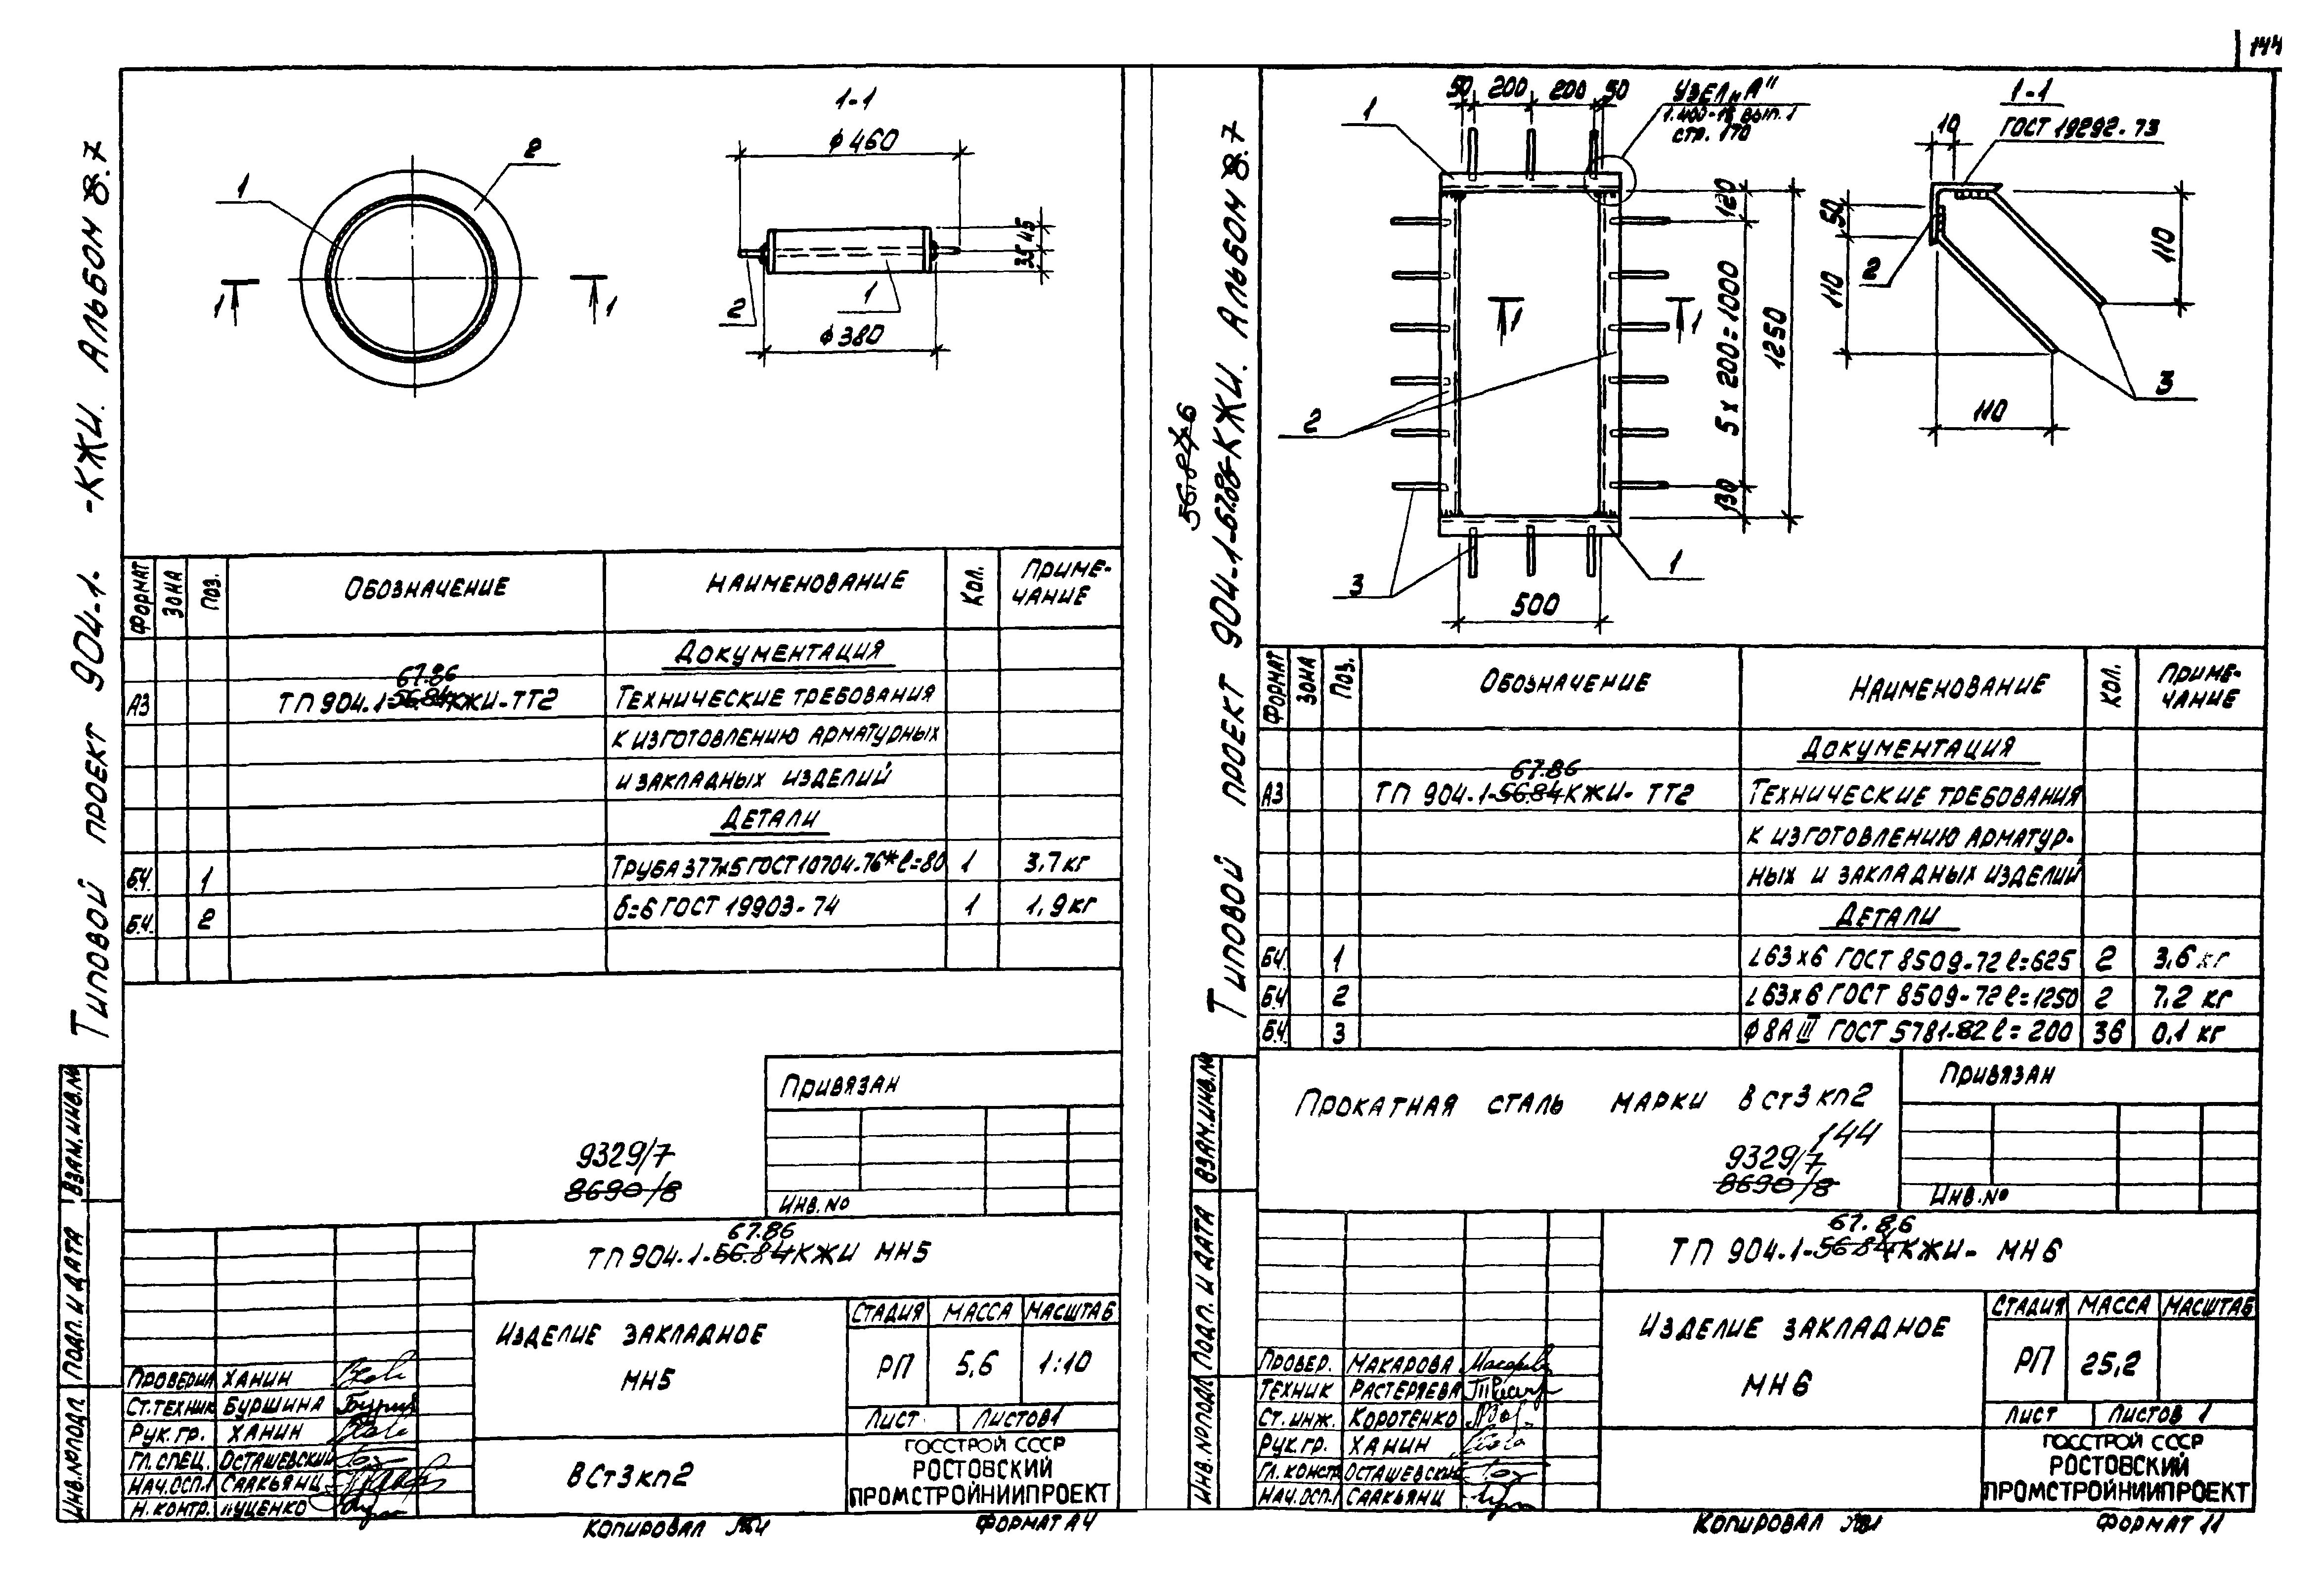 144
Типовой проект 904-1- -КЖИ. Альбом 8.7
1-1
ϕ460
ϕ380
45
35
1
2
1
1
2
1
Формат
Зона
Поз.
Обозначение
Наименование
Кол.
Приме-
чание
Документация
67.86
А3 ТП 904-1-56.84 КЖИ-ТТ2 Технические требования
к изготовлению арматурных
и закладных изделий
Детали
Б.Ч. 1 Труба 377х5 ГОСТ 10704-76* ℓ=80 1 3,7 кг
Б.Ч. 2 δ=6 ГОСТ 19903-74 1 1,9 кг
Привязан
Инв. №
9329/7
8690/8
67.86
ТП 904-1-56.84 КЖИ МН5
Изделие закладное
МН5
Стадия Масса Масштаб
РП 5,6 1:10
Лист Листов 1
ВСт3кп2
Госстрой СССР
Ростовский
Промстройниипроект
Проверил Ханин
Ст.техник Буршина
Рук.гр. Ханин
Гл.спец. Осташевский
Нач.ОСП-1 Саакьянц
Н.контр. Луценко
Взам.инв.№
Подп. и дата
Инв.№ подл.
Копировал
Формат А4
56.84 6
Типовой проект 904-1-67.86 КЖИ. Альбом 8.7
50 200 200 50
Узел „А"
1.400-15 вып. 1
стр. 170
1
120
5 х 200 = 1000
130
1250
1
1
2
3
1
500
1-1
10
ГОСТ 19292-73
50
110
110
110
2
3
Формат
Зона
Поз.
Обозначение
Наименование
Кол.
Приме-
чание
Документация
67.86
А3 ТП 904-1-56.84 КЖИ-ТТ2 Технические требования
к изготовлению арматур-
ных и закладных изделий
Детали
Б.Ч. 1 ∟63х6 ГОСТ 8509-72 ℓ=625 2 3,6 кг
Б.Ч. 2 ∟63х6 ГОСТ 8509-72 ℓ=1250 2 7,2 кг
Б.Ч. 3 ϕ8АIII ГОСТ 5781-82 ℓ=200 36 0,1 кг
Прокатная сталь марки ВСт3кп2
144
9329/7
8690/8
Привязан
Инв. №
67.86
ТП 904-1-56.84 КЖИ- МН6
Изделие закладное
МН6
Стадия Масса Масштаб
РП 25,2
Лист Листов 1
Госстрой СССР
Ростовский
Промстройниипроект
Провер. Макарова
Техник Растеряева
Ст.инж. Коротенко
Рук.гр. Ханин
Гл.констр. Осташевский
Нач.ОСП-1 Саакьянц
Взам.инв.№
Подп. и дата
Инв.№ подл.
Копировал
Формат 11